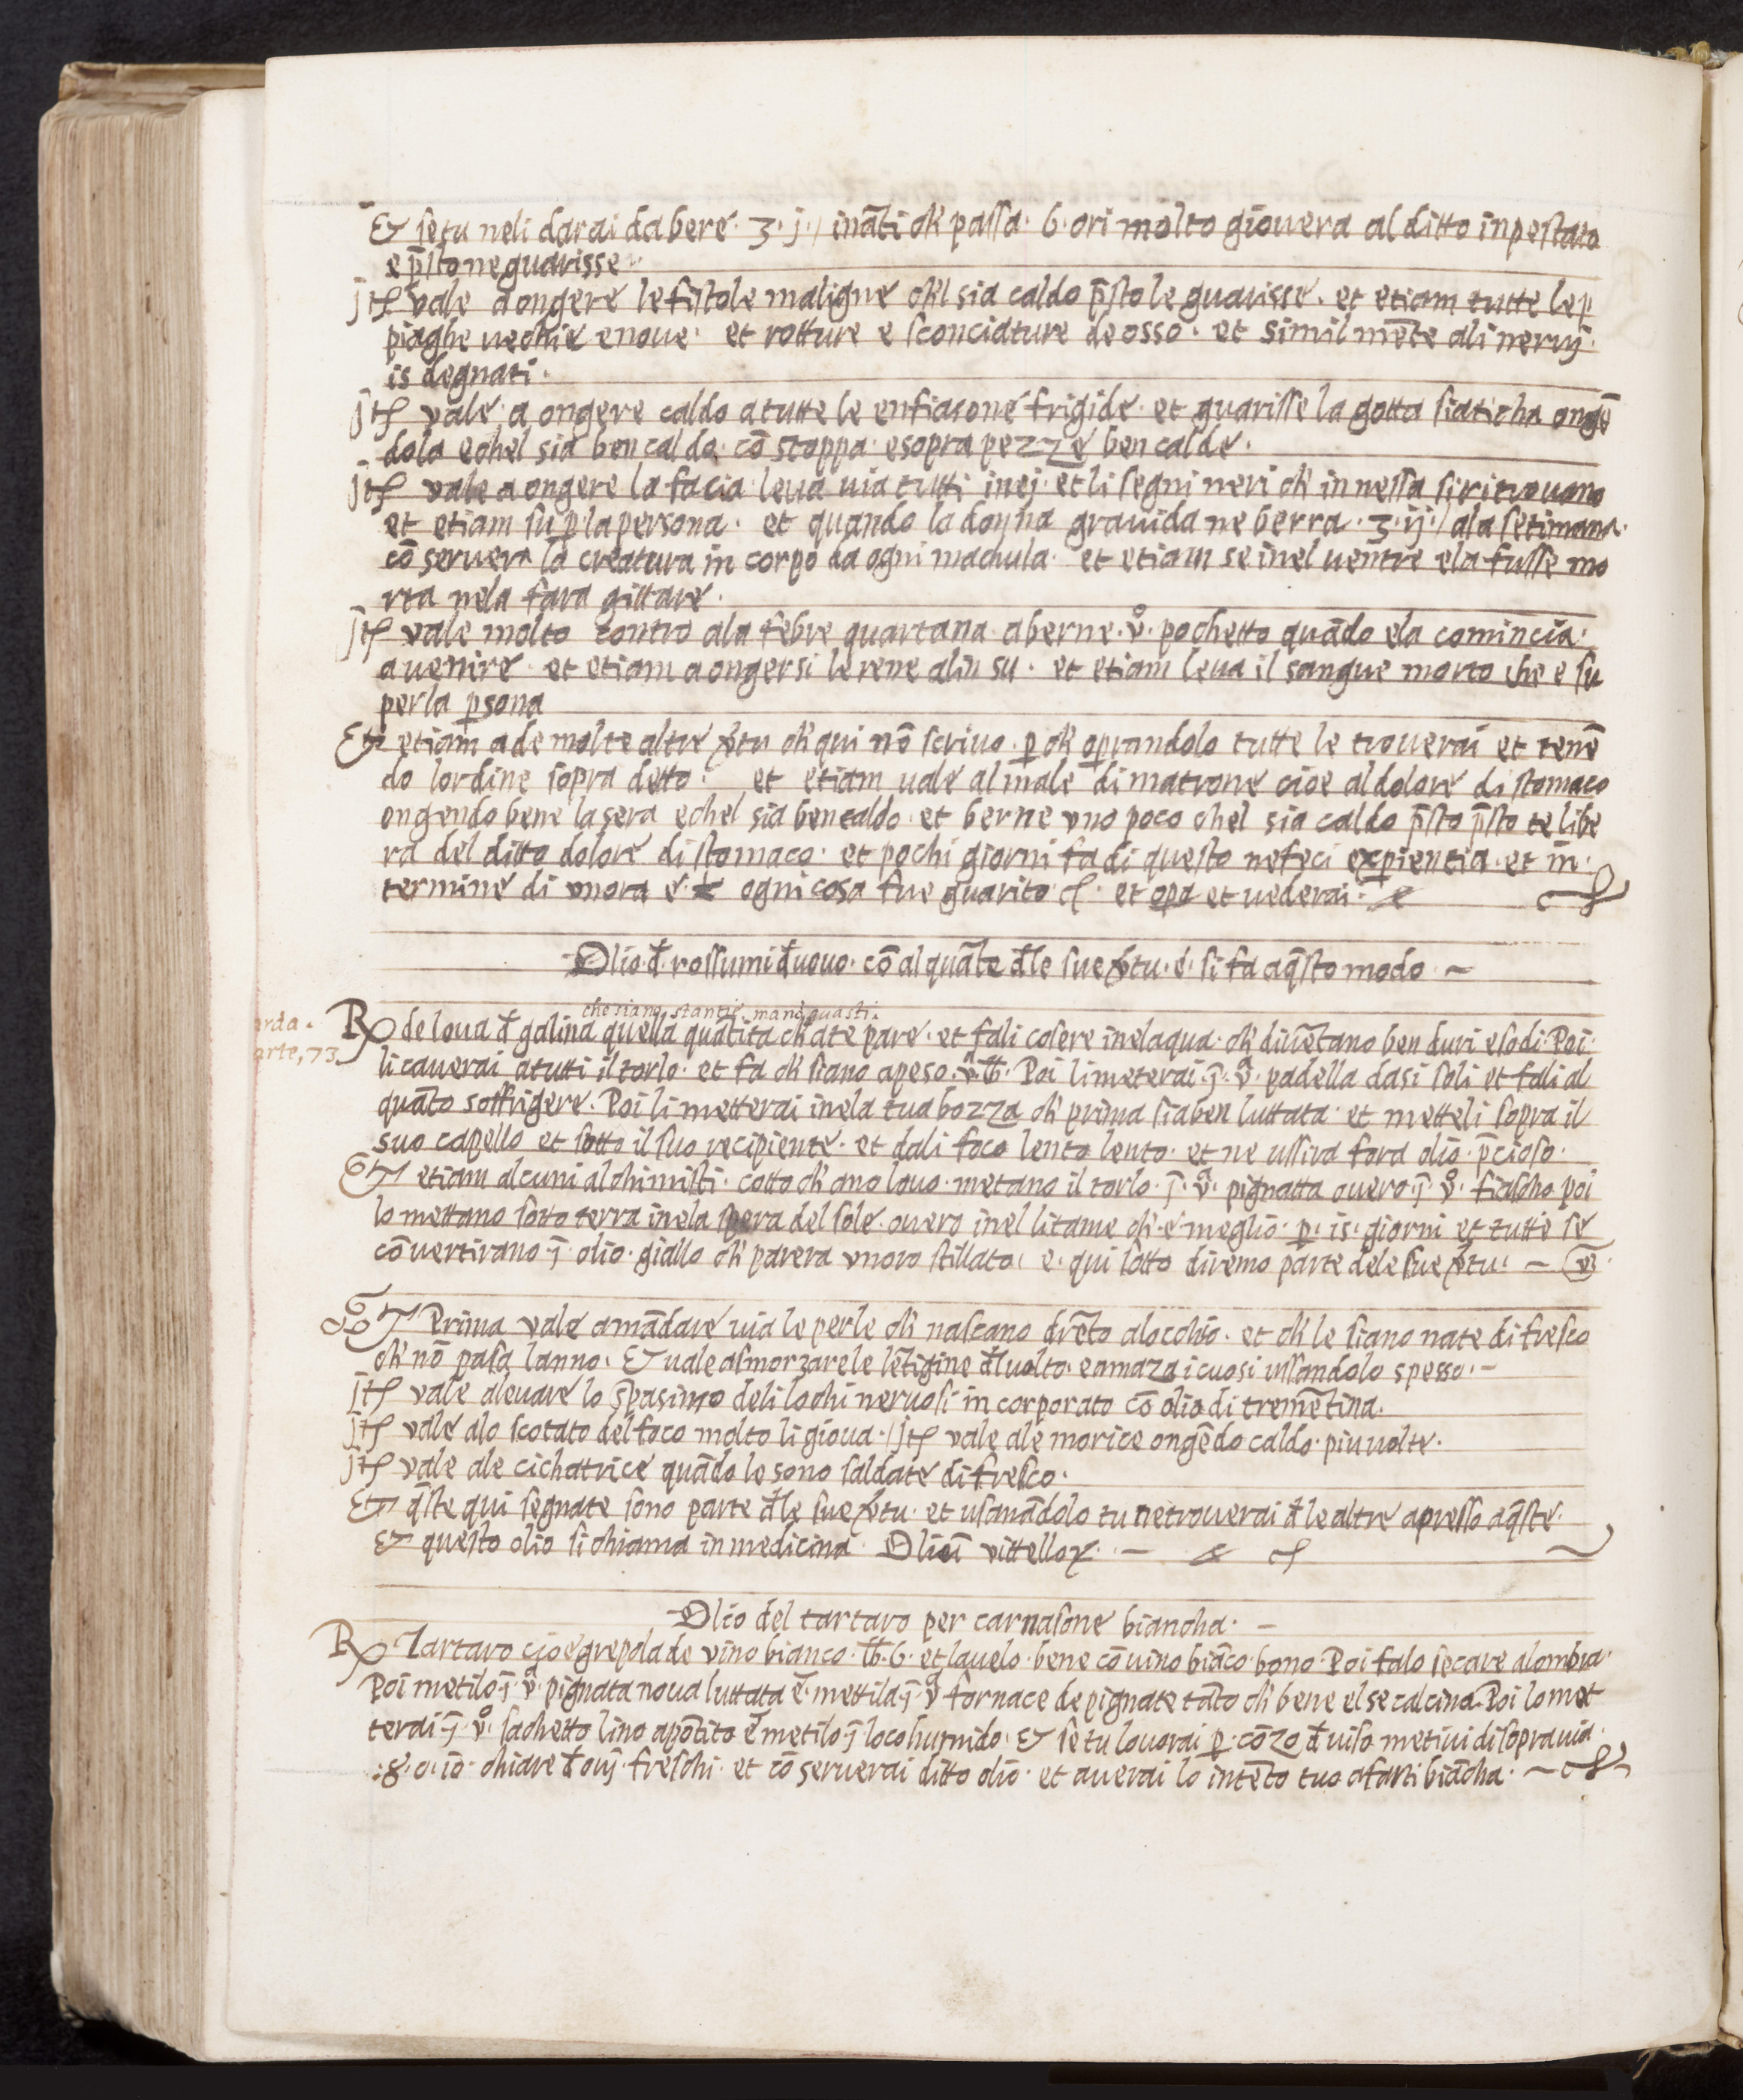 Et se tu neli darai da bere · ʒ · j · / inãti ch' passa · 6 · ori molto giouera al ditto inpestato
e p̃sto ne guarisse ·
jtẽ vale a ongere le fistole maligne ch'l sia caldo p̃sto le guarisse · et etiam tutte le p
piaghe uechie e noue · et rotture e sconciature de osso · et simil mẽte ali neruj ·
is degnati ·
jtẽ vale · a ongere caldo a tutte le enfiasone frigide · et guarisse la gotta siaticha ongẽ
dola e chel sia ben caldo cõ stoppa · e sopra pezze ben calde ·
jtẽ vale a ongere la facia · leua uia tutti i nej · et li segni neri ch' in nessa si ritrouano
et etiam su p la persona · et quando la donna grauida ne berra · ʒ · ij · / ala setimana ·
cõ seruera la creatura in corpo da ogni machula · et etiam se inel uentre ela fusse mo
rta nela fara gittare ·
jtẽ vale molto contro ala febre quartana · a berne · vº · pochetto quãdo ela comincia ·
a uenire · et etiam a ongersi le rene alin su · et etiam leua il sangue morto che e su
per la psona
Et etiam a de molte altre v̄tu ch' qui nõ scriuo · p ch' oprandolo tutte le trouerai et tenẽ
do lordine sopra detto · et etiam uale al male di matrone cioe al dolore di stomaco
ongendo bene la sera e chel sia ben caldo · et berne vno poco chel sia caldo p̃sto p̃sto te libe
ra del ditto dolore di stomaco · et pochi giorni fa di questo ne feci expientia · et in ·
termine di vnora e ogni cosa fue guarito · et opa et uederai ·
Olio đ rossumi đ uouo · cõ al quãte đle sue v̄tu · e · si fa a q̃sto modo · ~
che siano stantie mano guasti ·
erda ·
arte, 73
℞ de loua đ galina quella quãtita ch' a te pare · et fali cosere inelaqua · ch' diuẽtano ben duri e sodi · Poi ·
li cauerai a tutti il torlo · et fa ch' siano a peso · vª · ℔ · Poi li meterai · j̃ · vª · padella da si soli et fali al
quãto soffrigere · Poi li metterai inela tua bozza ch' prima sia ben luttata · et metteli sopra il
suo capello et sotto il suo recipiente · et dali foco lento lento · et ne ussira fora olio · p̃cioso ·
ET etiam alcuni alchimisti · cotto ch' ano louo · metano il torlo · j̃ · vª · pignatta ouero · j̃ · vº · fiascho poi
lo mettano sotto terra inela spera del sole · ouero inel litame ch' e meglio · p · is · giorni et tutte se
cõ uertirano · j̃ · olio · giallo ch' parera vnoro stillato · e · qui sotto diremo parte dele sue v̄tu · ~
ET Prima vale a mãdare uia le perle ch' nascano drẽto alochio · et ch' le siano nate di fresco
ch' nõ pasa lanno · Et uale a smorzare le lẽtigine đluolto · e amaza i cuosi ussandolo spesso · ~
jtẽ vale a leuare lo spasimo deli lochi neruosi · in corporato cõ olio di tremẽtina ·
jtẽ vale alo scotato del foco molto li gioua · / jtẽ vale ale morice ongẽdo caldo · piu uolte ·
jtẽ vale ale cichatrice quãdo le sono saldate di fresco ·
Et q̃ste qui segnate sono parte đle sue v̄tu · et usanãdolo tu ne trouerai đ le altre apresso a q̃ste ·
Et questo olio si chiama in medicina · Olieũ vittelloꝝ ·
Olio del tartaro per carnasone biancha · ~
℞ Tartaro cioe grepola de vino bianco · ℔ · 6 · et lauelo · bene cõ uino biãco · bono · Poi falo secare alombra ·
Poi metilo · j̃ · vª · pignata noua luttata e · mettila · j̃ · vª fornace de pignate tãto ch' bene el se calcina · Poi lo met
terai · j̃ · vº · sachetto lino apõtito e metilo · j̃ · loco humido · Et se tu louorai p · cõzo đ uiso metiui di sopra uia ·
: 8 · o · io · chiare đ ouj · freschi · et cõ seruerai ditto olio · et auerai lo intẽto tuo a farti biãcha · ~